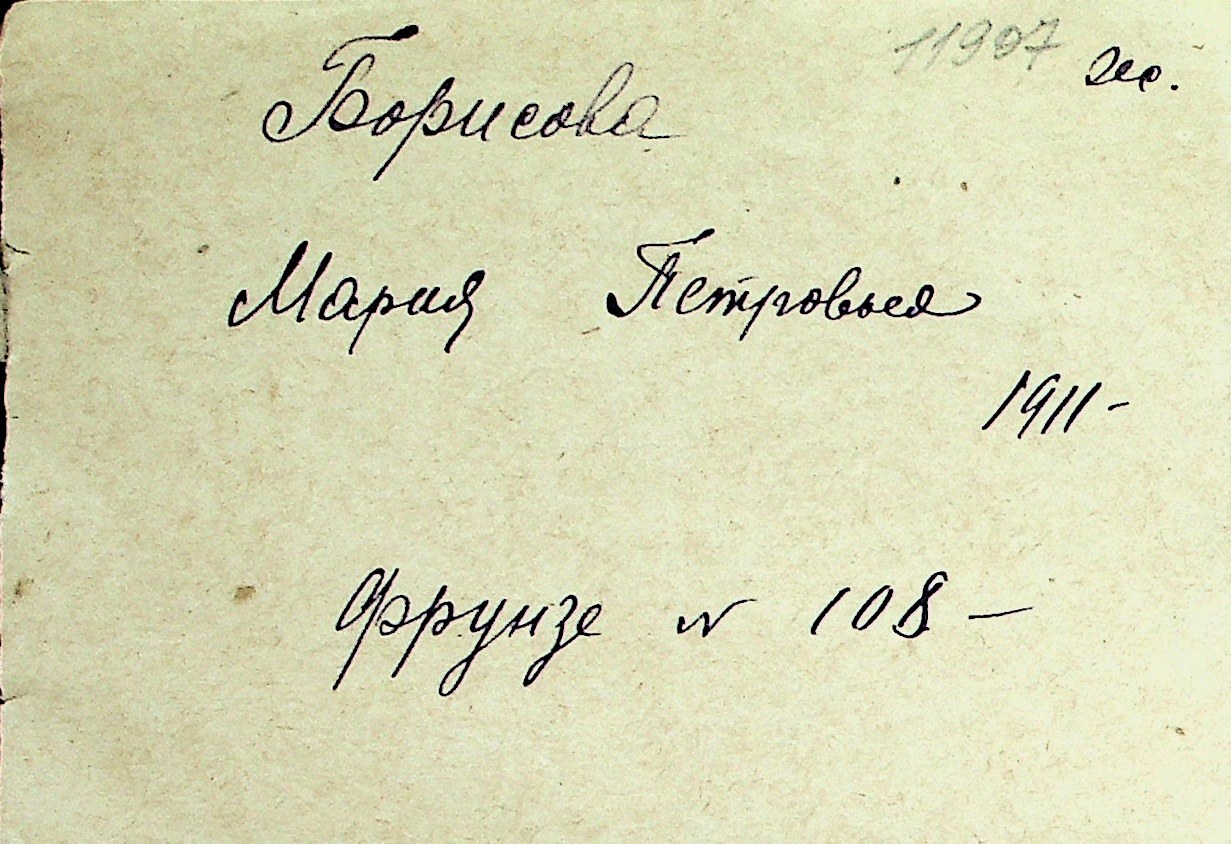 11907 эее.
Борисова
Мария Петровна
1911-
Фрунзе N 108 -